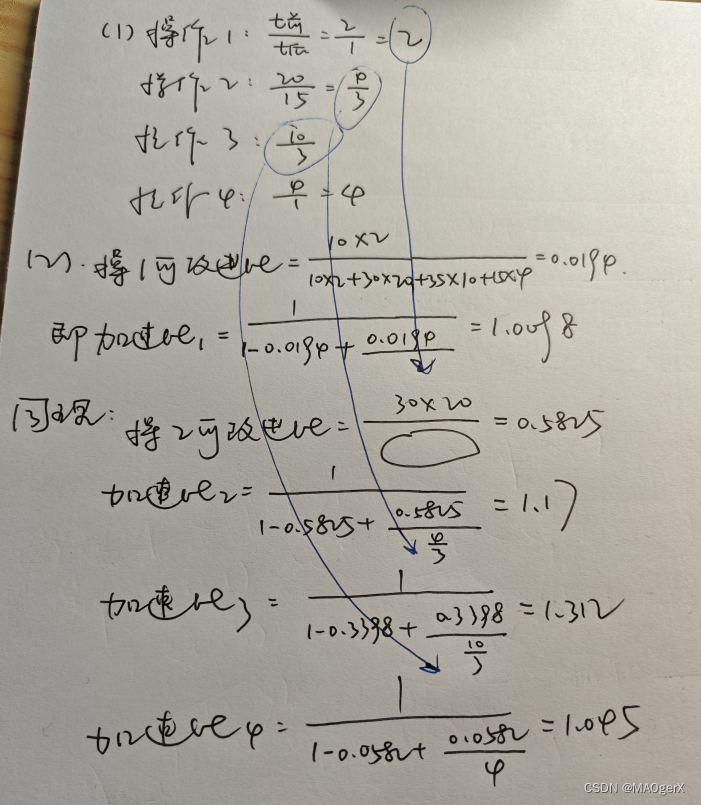 (1) 操作1: t前/t后 = 2/1 = 2
操作2: 20/15 = 4/3
操作3: 10/3
操作4: 4/1 = 4
(2). 操1可改进比 = 10×2 / 10×2+30×20+35×10+15×4 = 0.0194.
即加速比1 = 1 / 1-0.0194 + 0.0194 = 1.0098
同理: 操2可改进比 = 30×20 = 0.5825
加速比2 = 1 / 1-0.5825 + 0.5825/(4/3) = 1.17
加速比3 = 1 / 1-0.3398 + 0.3398/(10/3) = 1.312
加速比4 = 1 / 1-0.0582 + 0.0582/4 = 1.045
CSDN @MAOgerX